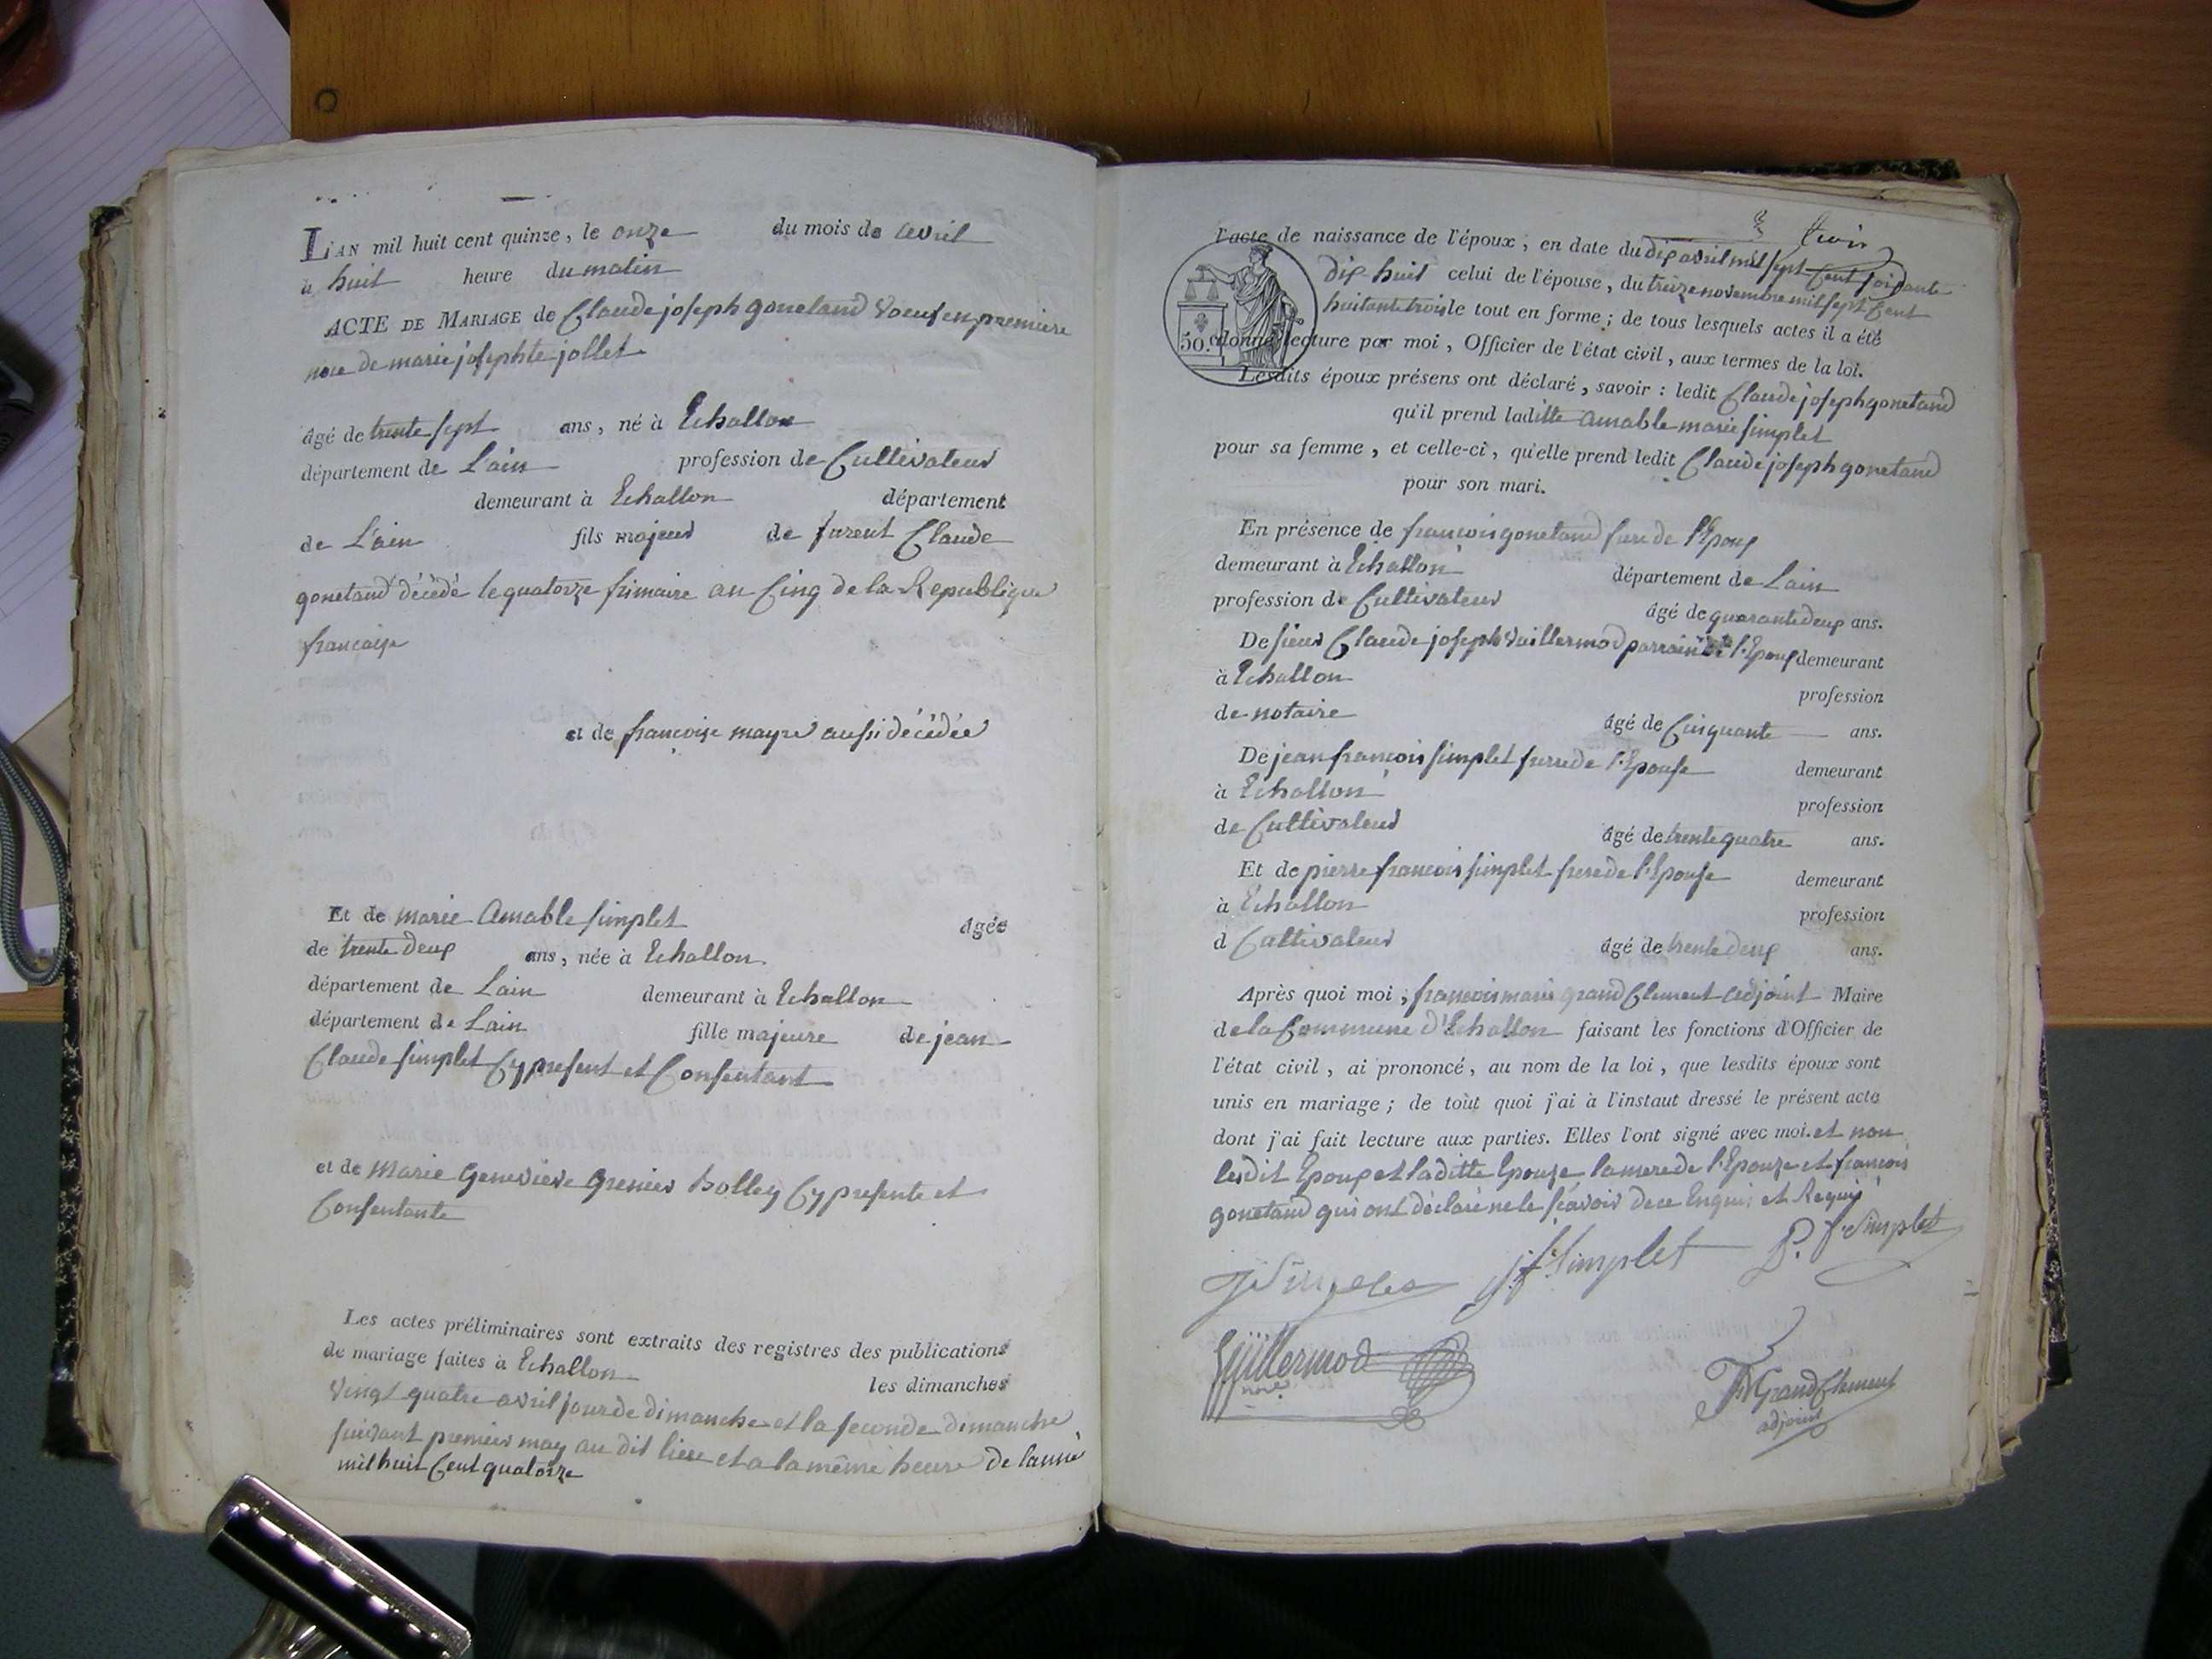 L'AN mil huit cent quinze, le onze du mois de avril
à huit heure du matin
ACTE DE MARIAGE de Claude joseph gonetand voeuf en premiere
noce de marie josephte jollet
âgé de trente sept ans, né à Echallon
département de Lain profession de Cultivateur
demeurant à Echallon département
de L'ain fils majeur de furent Claude
gonetand décédé le quatorze frimaire an Cinq de la Republique
francaise
et de francoise mayre aussi décédée
Et de marie Amable simplet âgée
de trente deux ans, née à Echallon.
département de Lain demeurant à Echallon
département de Lain fille majeure de jean
Claude simplet Cy present et Consentant
et de Marie Genevieve Grenier bolley Cy presente et
Consentante
Les actes préliminaires sont extraits des registres des publications
de mariage faites à Echallon les dimanches
vingt quatre avril jour de dimanche et la seconde dimanche
suivant premier may au dit lieu et a la même heure de lanné
mil huit Cent quatorze
l'acte de naissance de l'époux, en date du dix avril mil sept Cent soixante
dix huit celui de l'épouse, du treize novembre mil sept Cent
huitante trois le tout en forme; de tous lesquels actes il a été
50.c donné lecture par moi, Officier de l'état civil, aux termes de la loi.
Lesdits époux présens ont déclaré, savoir: ledit Claude joseph gonetand
qu'il prend laditte amable marie simplet
pour sa femme, et celle-ci, qu'elle prend ledit Claude joseph gonetand
pour son mari.
En présence de francois gonetand frere de l'Epoux
demeurant à Echallon département de Lain
profession de Cultivateur âgé de quarante deux ans.
De sieur Claude joseph vuillermod parrain de l'Epoux demeurant
à Echallon profession
de notaire âgé de Cinquante ans.
De jean francois simplet frere de l'Epouse demeurant
à Echallon profession
de Cultivateur âgé de trente quatre ans.
Et de pierre francois simplet frere de l'Epouse demeurant
à Echallon profession
d Cultivateur âgé de trente deux ans.
Après quoi moi, francois marie grand Clement adjoint Maire
de la Commune d'Echallon faisant les fonctions d'Officier de
l'état civil, ai prononcé, au nom de la loi, que lesdits époux sont
unis en mariage; de tout quoi j'ai à l'instant dressé le présent acte
dont j'ai fait lecture aux parties. Elles l'ont signé avec moi. et non
lesdit Epoux et laditte Epouze la mere de l'Epouze et francois
gonetand qui ont déclaré ne le scavoir de ce Enquis et Requis
jf Simplet P. f Simplet
Vuillermod
GrandClement
adjoint